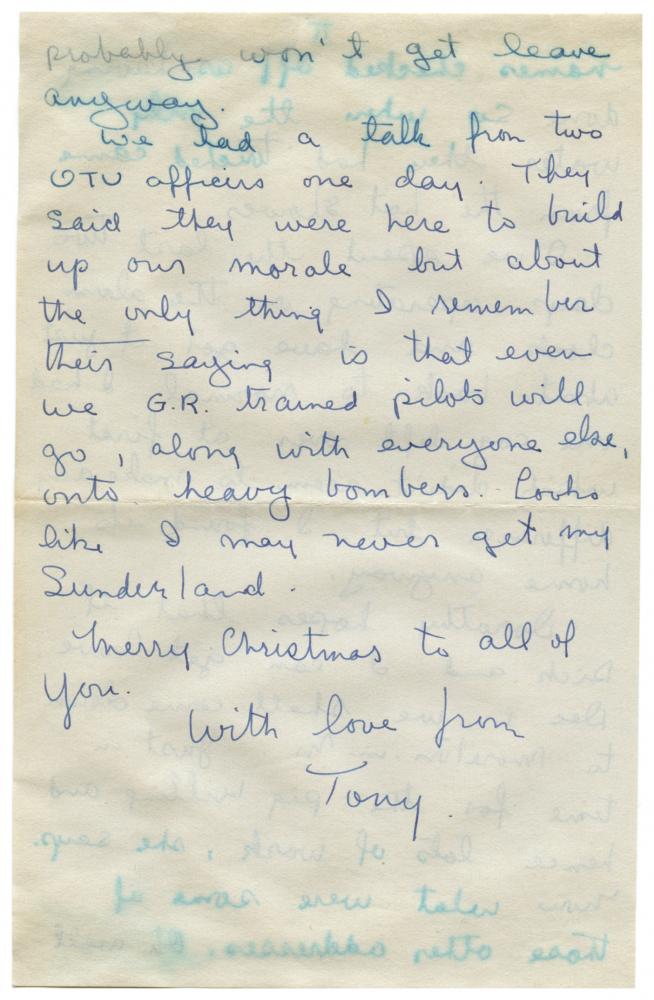 probably won't get leave
anyway.
We had a talk from two
OTU officers one day. They
said they were here to build
up our morale but about
the only thing I remember
their saying is that even
we G.R. trained pilots will
go, along with everyone else,
onto heavy bombers. Looks
like I may never get my
Sunderland.
Merry Christmas to all of
you.
With love from
Tony.